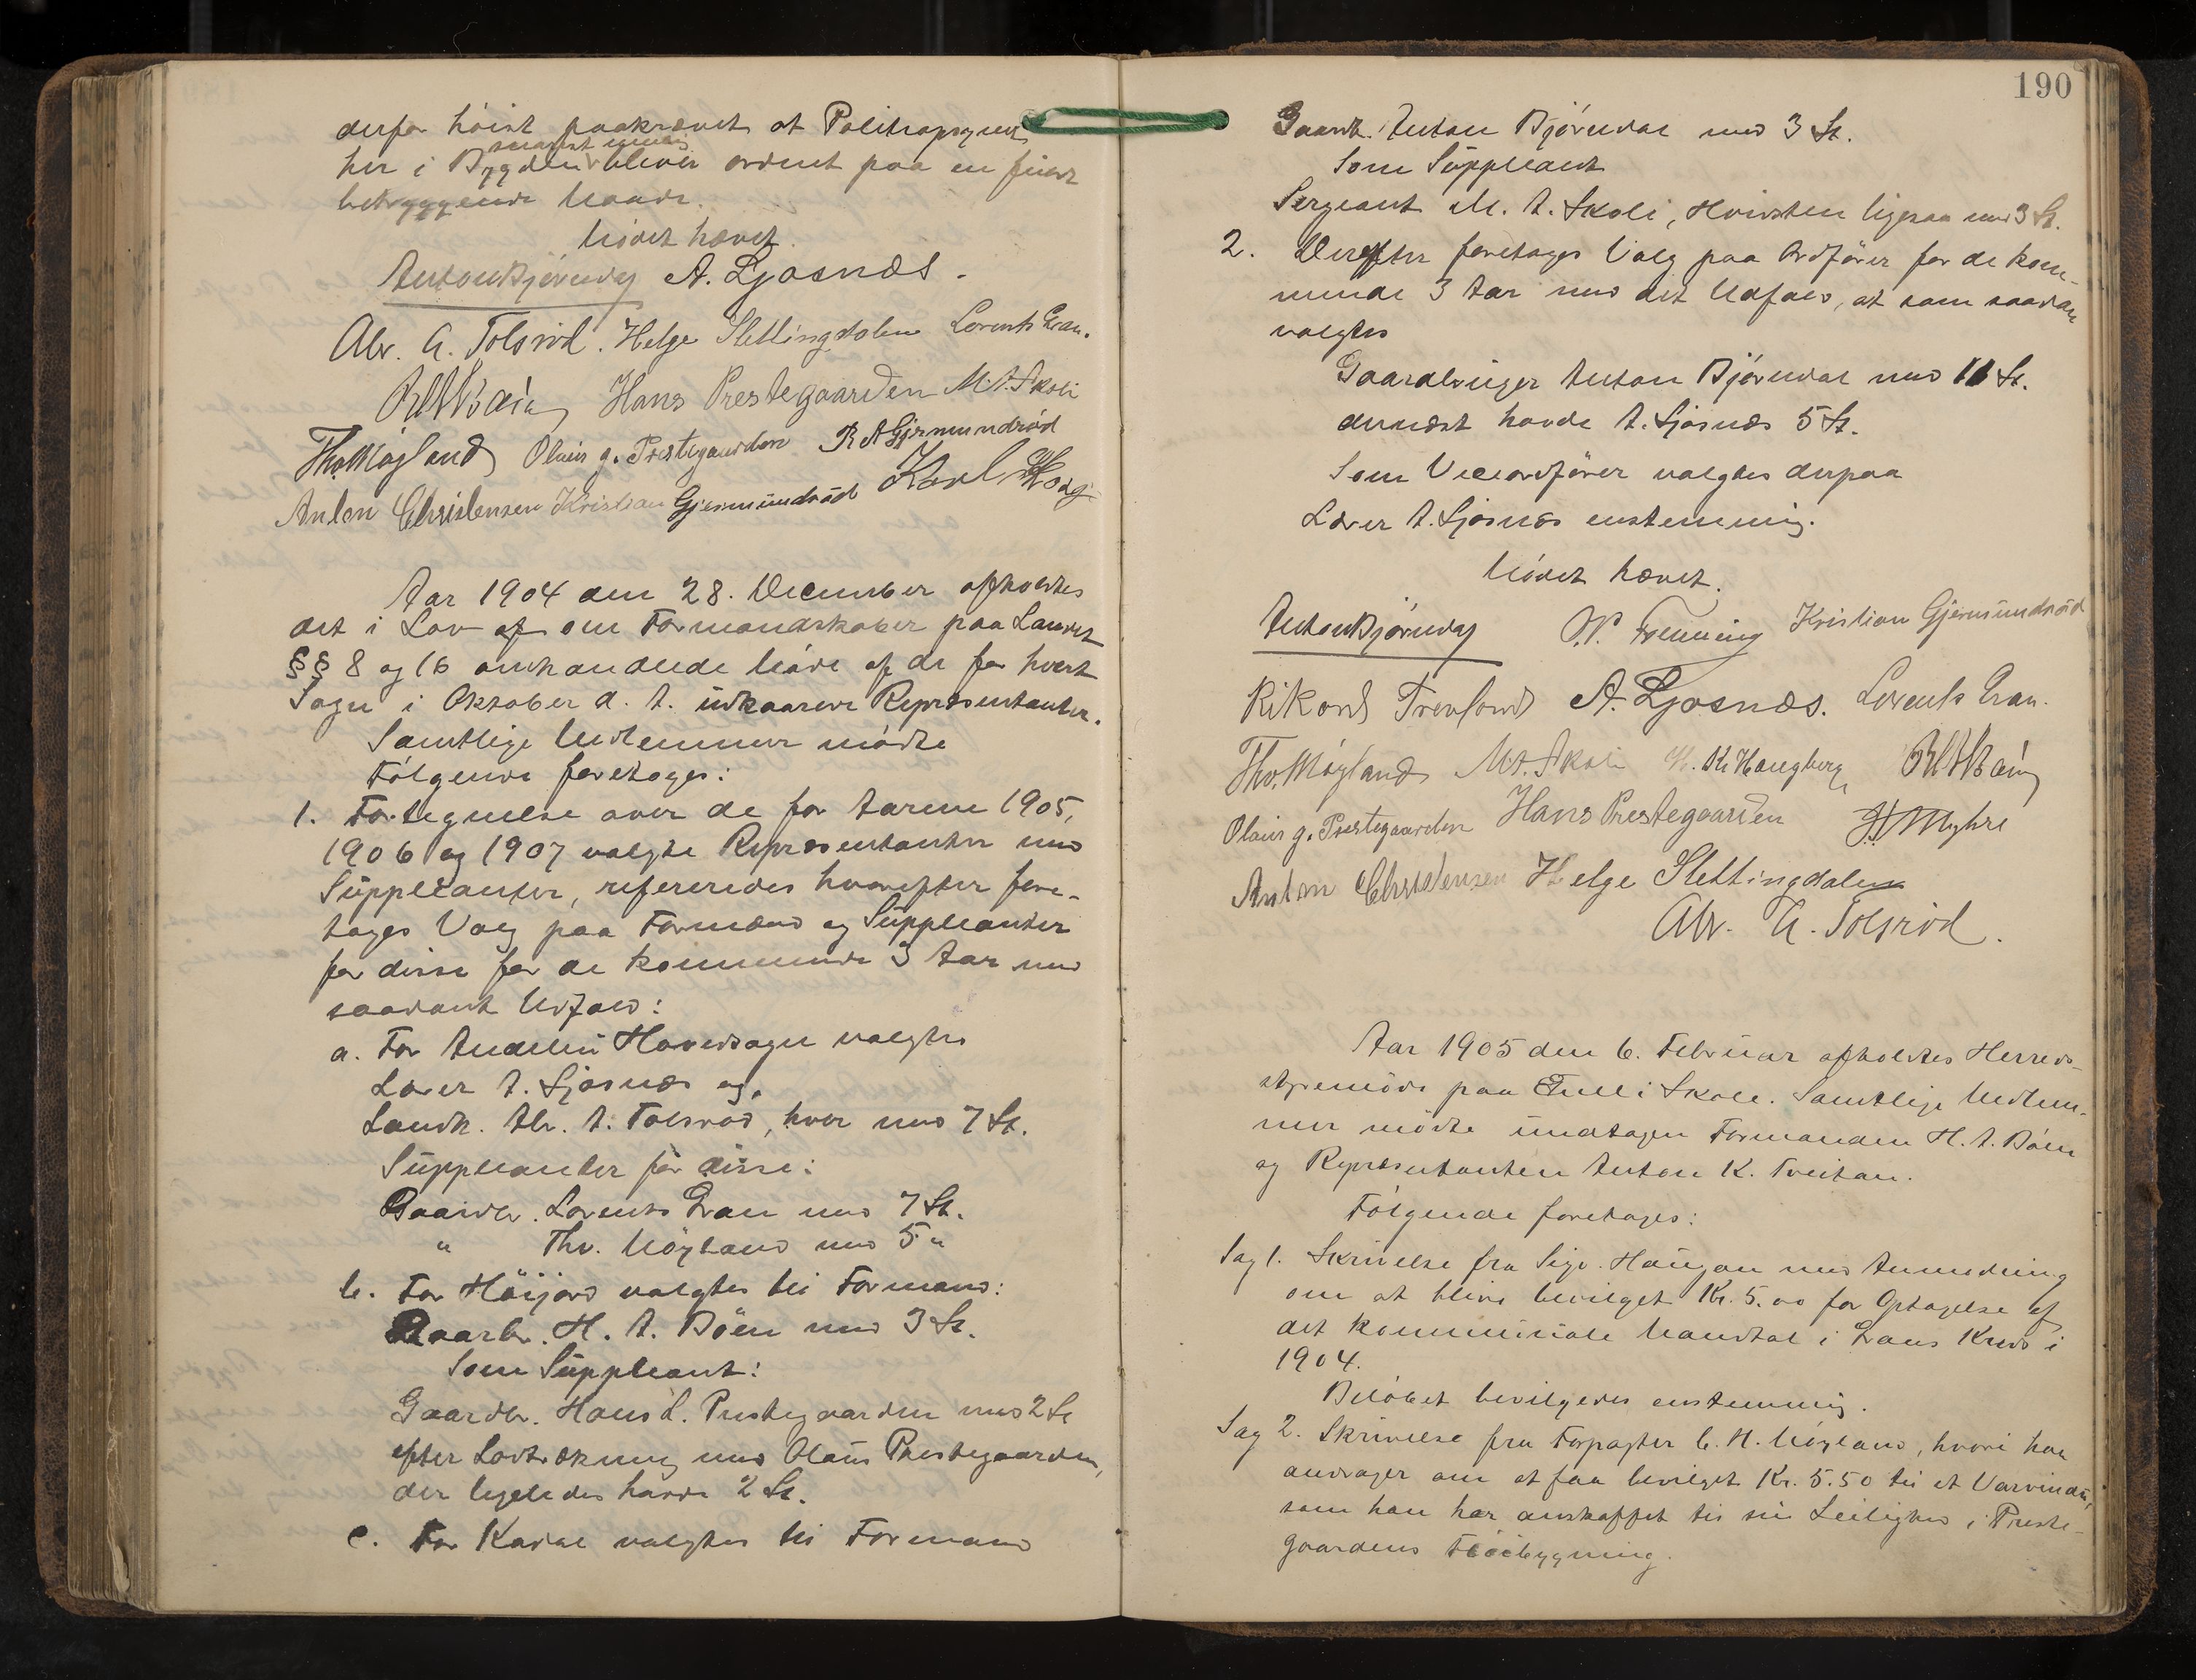 derfor høist paakrævet at Politiopsynet
snarest mulig
her i Bygden bliver ordent paa en fuldt
betryggende Maade.
Mødet hævet.
Anton Bjørndal A. Ljosnæs.
Abr. A. Tolsrød. Helge Slettingdalen Lorents Gran.
Hans Prestegaarden M.A. Skoli
Thv. Møyland Olaus g. Prestegaarden R A Gjermundrød
Anton Christensen Kristian Gjermundrød Karl Haug
Aar 1904 den 28. December afholdtes
det i Lov af om Formandskaber paa Landet
§§ 8 og 16 omhandlede Møde af de for hvert
Sogn i Oktober d. A. udkaarede Repræsentanter.
Samtlige Medlemmer mødte
Følgende foretoges:
1. Fortegnelse over de for Aarene 1905,
1906 og 1907 valgte Repræsentanter med
Suppleanter, refereredes hvorefter fore-
toges Valg paa Formænd og Suppleanter
for disse for de kommende 3 Aar med
saadant Udfald:
a. For Andebu Hovedsogn valgtes
Lærer A. Ljosnæs og
Landh. Abr. A. Tolsrød, hver med 7 St.
Suppleanter for disse:
Gaardbr. Lorents Gran med 7 St.
" Thv. Møyland med 5 "
b. For Høijord valgtes til Formand:
Gaardbr. H. A. Bøen med 3 St.
Som Suppleant:
Gaardbr. Hans L. Prestegaarden med 2 St
efter Lodtrækning med Olaus Prestegaarden,
der ligeledes havde 2 St.
c. For Kodal valgtes til Formand
190
Gaardb. Anton Bjørndal med 3 St.
Som Suppleant
Sergeant M. A. Skoli, Hvidsten ligesaa med 3 St.
2. Derefter foretoges Valg paa Ordfører for de kom-
mende 3 Aar med det Udfald, at som saadan
valgtes
Gaardbruger Anton Bjørndal med 11 St.
dernæst havde A. Ljosnæs 5 St.
Som Viceordfører valgtes derpaa
Lærer A. Ljosnæs enstemmig.
Mødet hævet.
Anton Bjørndal Kristian Gjermundrød
Rikard Trevland A. Ljosnæs. Lorents Gran.
Thv. Møyland M.A. Skoli K. Haugberg
Olaus g. Prestegaarden Hans Prestegaarden Myhre
Anton Christensen Helge Slettingdalen
Abr. A. Tolsrød.
Aar 1905 den 6. Februar afholdtes Herreds-
styremøde paa Skole. Samtlige Medlem-
mer mødte undtagen Formanden H. A. Bøen
og Repræsentanten Anton K. Trevitan.
Følgende foretoges:
Sag 1. Skrivelse fra Sigv. Haugan med Anmodning
om at blive bevilget Kr. 5.00 for Optagelse af
det kommunale Mandtal i Grans Kreds i
1904.
Beløbet bevilgedes enstemmig.
Sag 2. Skrivelse fra Forpagter C. H. Møyland, hvori han
andrager om at faa bevilget Kr. 5.50 til et Varvindu,
som han har anskaffet til sin Leilighed i Preste-
gaardens Fløibygning.